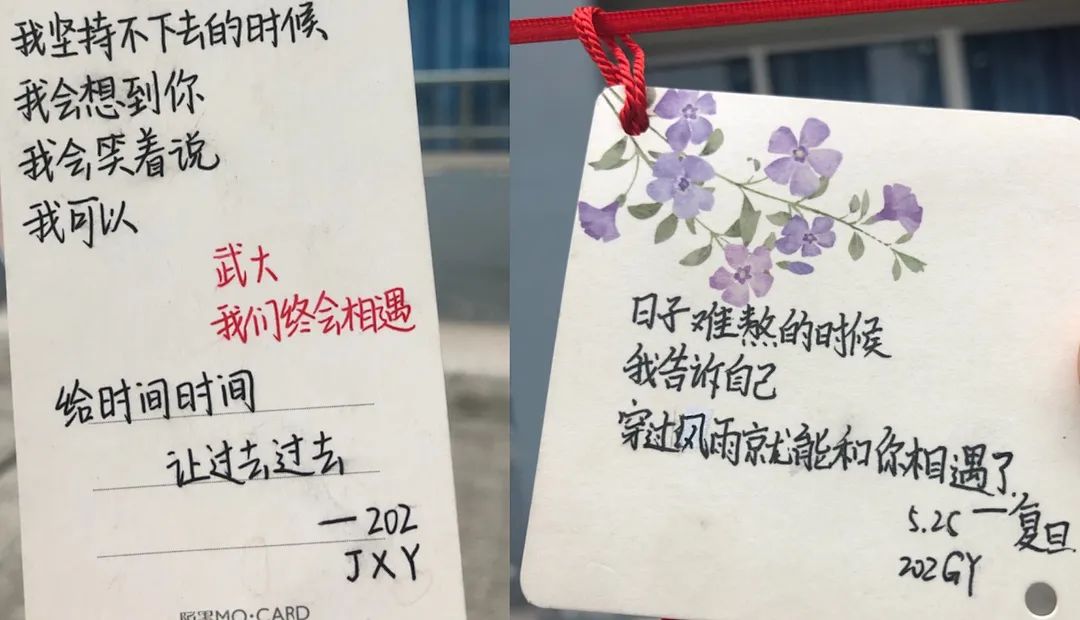 我坚持不下去的时候
我会想到你
我会笑着说
我可以
武大
我们终会相遇
给时间时间
让过去过去
—202
JXY
MO·CARD
日子难熬的时候
我告诉自己
穿过风雨就能和你相遇了.
—复旦
5.25
202GY